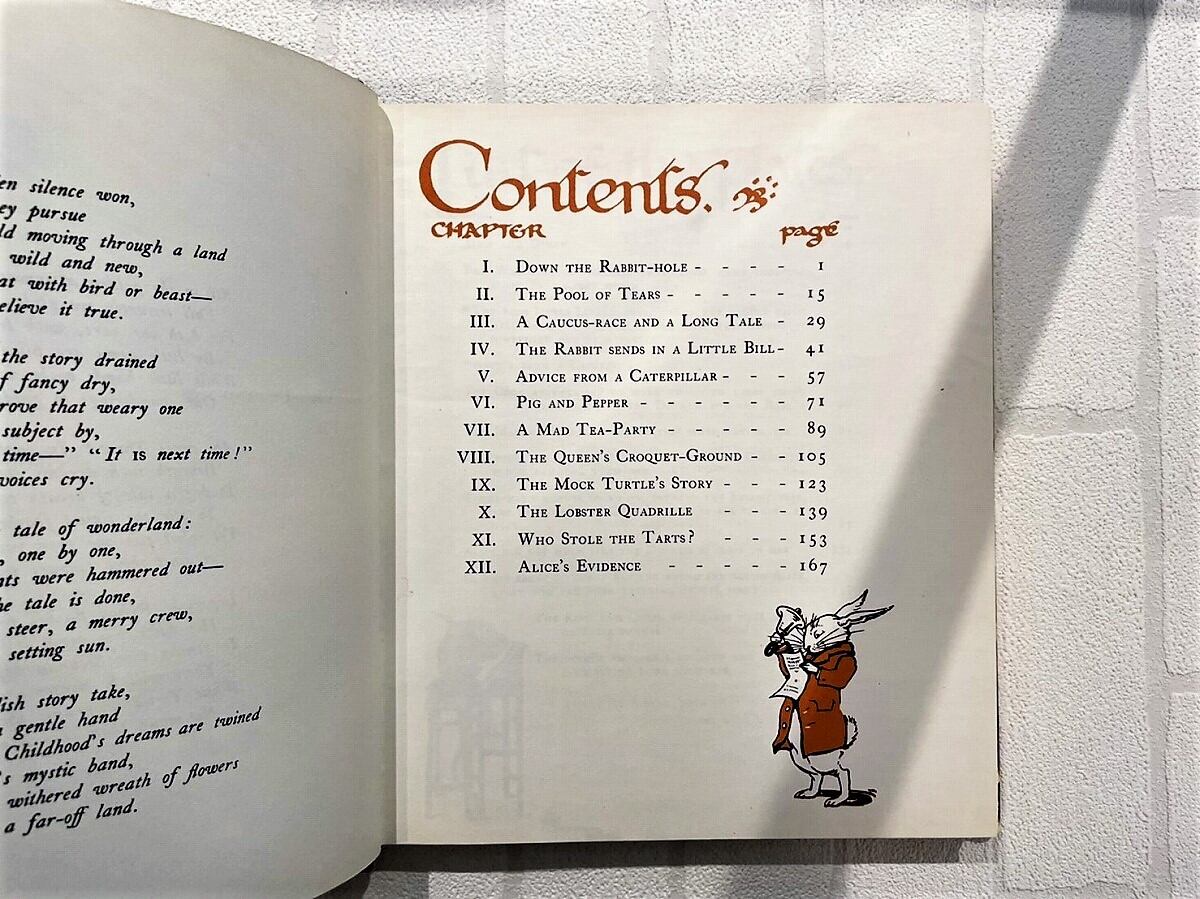 silence won,
pursue
moving through a land
wild and new,
with bird or beast—
it true.
the story drained
fancy dry,
that weary one
subject by,
time—" "It IS next time!"
voices cry.
tale of wonderland:
, one by one,
were hammered out—
tale is done,
steer, a merry crew,
setting sun.
story take,
gentle hand
Childhood's dreams are twined
mystic band,
withered wreath of flowers
a far-off land.
Contents.
CHAPTER page
I. Down the Rabbit-hole - - - - 1
II. The Pool of Tears - - - - - 15
III. A Caucus-race and a Long Tale - 29
IV. The Rabbit sends in a Little Bill - 41
V. Advice from a Caterpillar - - - 57
VI. Pig and Pepper - - - - - - 71
VII. A Mad Tea-Party - - - - - 89
VIII. The Queen's Croquet-Ground - - 105
IX. The Mock Turtle's Story - - - 123
X. The Lobster Quadrille - - - 139
XI. Who Stole the Tarts? - - - 153
XII. Alice's Evidence - - - - - 167